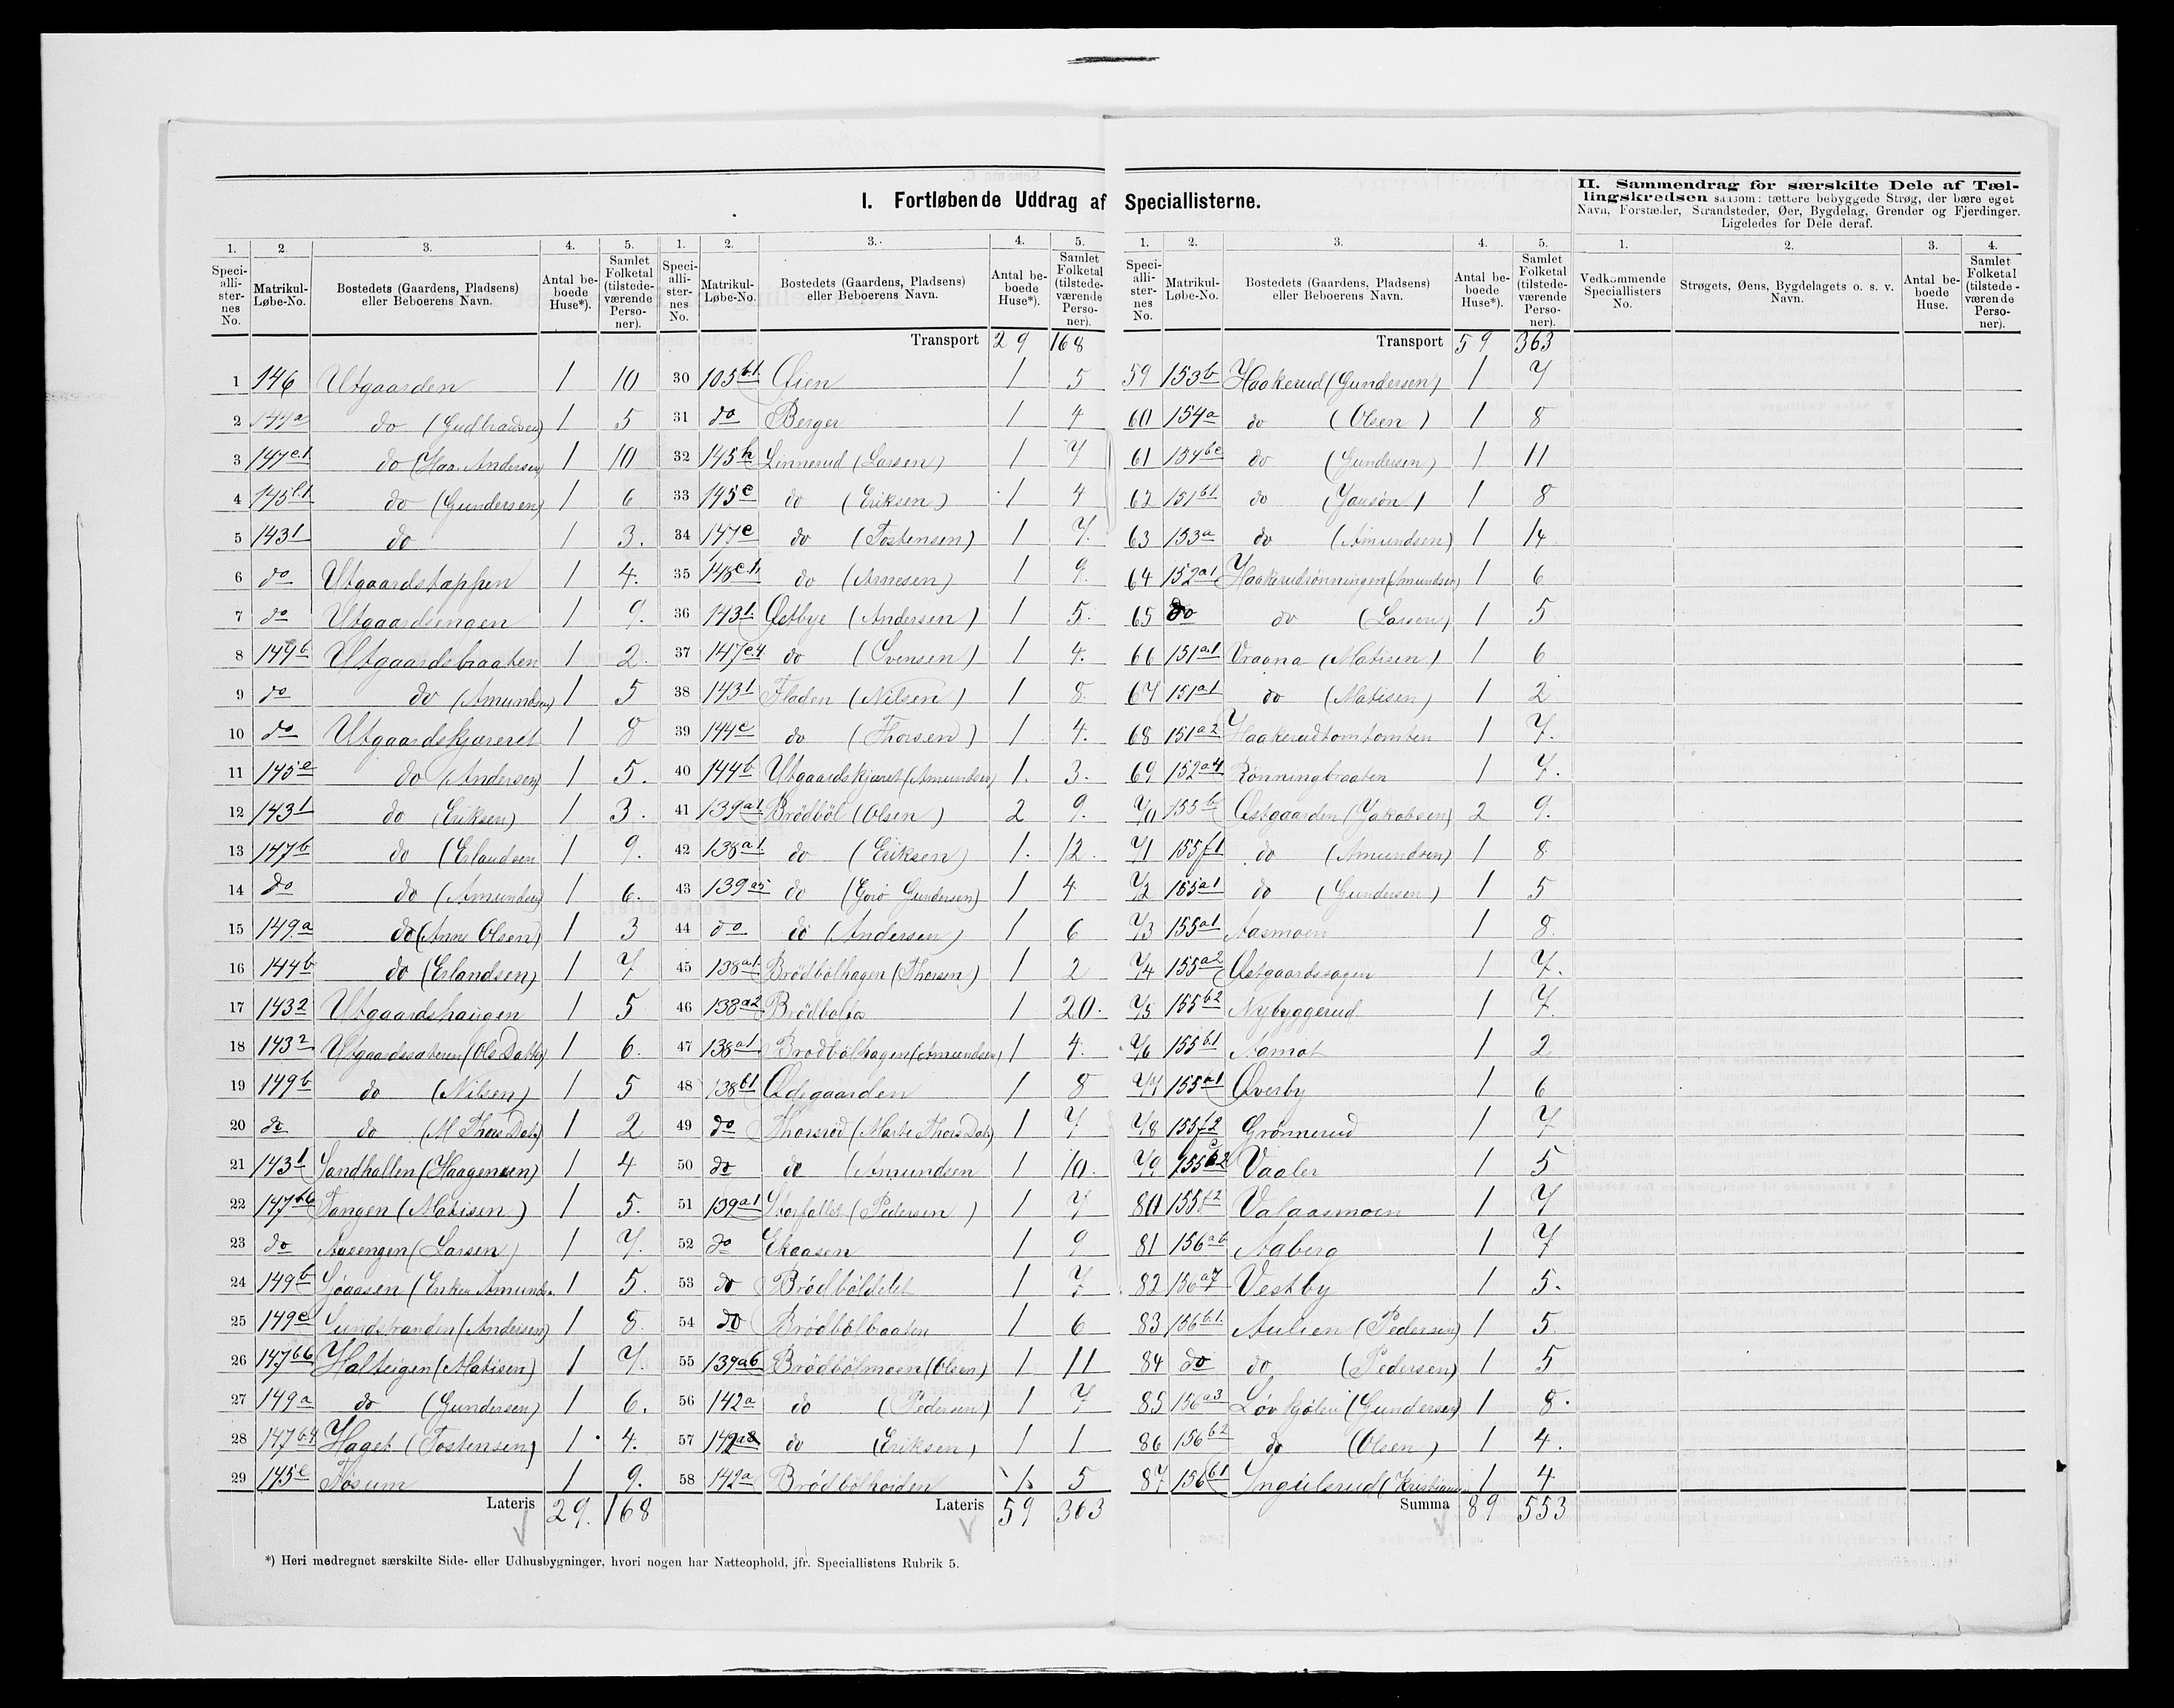 I. Fortløbende Uddrag af Speciallisterne.
1. 2. 3. 4. 5.
Speci-alli-ster-nes No. Matrikul-Løbe-No. Bostedets (Gaardens, Pladsens) eller Beboerens Navn. Antal be-boede Huse*). Samlet Folketal (tilstede-værende Perso-ner).
1 146 Utgaarden 1 10
2 144a do (Gudbrandsen) 1 5
3 147c.1 do (Haa. Andersen) 1 10
4 145 do (Gundersen) 1 6
5 143 1 do 1 3.
6 do Utgaardstappen 1 4.
7 do Utgaardsengen 1 9.
8 149b Utgaardsbraaten 1 2.
9 do do (Amundsen) 1 5
10 do Utgaardskjæreret 1 8
11 145e do (Andersen) 1 5.
12 143 1 do (Eriksen) 1 3.
13 147b do (Erlandsen 1 9.
14 do do (Amundsen) 1 6.
15 149.a do (Anne Olsen) 1 3
16 144b do (Erlandsen) 1 7
17 143 2 Utgaardshaugen 1 5
18 143 2 Utgaardssæteren (Ols Datter) 1 6.
19 149b do (Nilsen) 1 5
20 do do (M Thors Dat.) 1 2
21 143 1 Sandhallen (Haagensen) 1 4
22 147b6 Tangen (Matisen) 1 5.
23 do Aasengen (Larsen) 1 7.
24 149b Sjøaasen (Enken Amunds. 1 5.
25 149c Sundstranden (Andersen) 1 8.
26 147b6 Halteigen (Matisen) 1 7.
27 149a do (Gundersen) 1 6.
28 147b4 Haget (Tostensen) 1. 4.
29 145e Føsum 1 9.
Lateris 29. 168
1. 2. 3. 4. 5.
Speci-alli-ster-nes No. Matrikul-Løbe-No. Bostedets (Gaardens, Pladsens) eller Beboerens Navn. Antal be-boede Huse*). Samlet Folketal (tilstede-værende Perso-ner).
Transport 29 168
30 105b1 Oien 1 5
31 do Berger 1 4
32 145h Linnerud (Larsen) 1 7
33 145e do (Eriksen) 1 4
34 147e do (Tostensen) 1 7.
35 148c.1. do (Arnesen) 1 9.
36 143 1. Østbye (Andersen) 1 5.
37 147e4 do (Svensen) 1 4.
38 143 1 Fladen (Nilsen) 1 8.
39 144c do (Thorsen) 1 4.
40 144b Utgaardskjæret (Amundsen) 1. 3.
41 139a1 Brødbøl (Olsen) 2 9.
42 138a1. do (Eriksen) 1. 12.
43 139a5 do (Goro Gundersen) 1 4
44 do do (Andersen) 1 6
45 138a1. Brødbølhagen (Thorsen) 1 2
46 138a2 Brødbølta 1 20.
47 138a1 Brødbølhagen (Amundsen) 1 4.
48 138b1 Ødegaarden 1 8
49 do Thorsrød (Marte Thors Dat.) 1 7
50 do do (Amundsen 1 10.
51 139a1 Storfallet (Pedersen) 1 7
52 do Ekaasen 1 9
53 do Brødbøldelet 1 7
54 do Brødbølbraaten 1 6
55 139a6 Brødbølmoen (Olsen) 1 11
56 142a do (Pedersen) 1 7
57 do (Eriksen) 1 1
58 142a Brødbølhøiden 1 5
Lateris 59 363
1. 2. 3. 4. 5.
Speci-alli-ster-nes No. Matrikul-Løbe-No. Bostedets (Gaardens, Pladsens) eller Beboerens Navn. Antal be-boede Huse*). Samlet Folketal (tilstede-værende Perso-ner).
Transport 59 363
59 153b Haakerud (Gundersen) 1 7
60 154a do (Olsen) 1 8
61 154bc do (Gundersen) 1 11
62 151b1 do (Jansøn) 1 8
63 153a do (Amundsen) 1 14
64 152a1 Haakerudrønningen (Amundsen) 1 6
65 do do (Larsen) 1 5
66 151a1 Vraana (Matisen) 1 6
67 151a1 do (Matisen) 1 2
68 151a2 Haakerudtomtomten 1 7.
69 152a4 Rønningbraaten 1 7.
70 155b Østgaarden (Jakobsen) 2 9.
71 155f1 do (Amundsen) 1 8
72 155a1 do (Gundersen) 1 5
73 155a1 Aasmoen 1 8.
74 155a2 Østgaardssagen 1 7.
75 155b2 Nybyggerud 1 7.
76 155b1 Aamot 1 2
77 155a1 Øverby 1 6
78 155f2 Grønnerud 1 7
79 155 Vaaler 1 5
80 155f2 Valaasmoen 1 7
81 156ab Aaberg 1 7
82 156a7 Vestby 1 5.
83 156b1. Aulien (Pedersen) 1 5.
84 do do (Pedersen) 1 5
85 156a3 Løvkjølen (Gundersen) 1 8.
86 156b2 do (Olsen) 1 4.
87 156b1 Ingulsrud (Kristiansen 1 4
Summa 89 553
II. Sammendrag for særskilte Dele af Tæl-
lingskredsen saasom: tættere bebyggede Strøg, der bære eget
Navn, Forstæder, Strandsteder, Øer, Bygdelag, Grender og Fjerdinger.
Ligeledes for Dele deraf.
1. 2. 3. 4.
Vedkommende Speciallisters No. Strøgets, Øens, Bygdelagets o. s. v. Navn. Antal be-boede Huse. Samlet Folketal (tilstede-værende Perso-ner).
*) Heri medregnet særskilte Side- eller Udhusbygninger, hvori nogen har Natteophold, jfr. Speciallistens Rubrik 5.